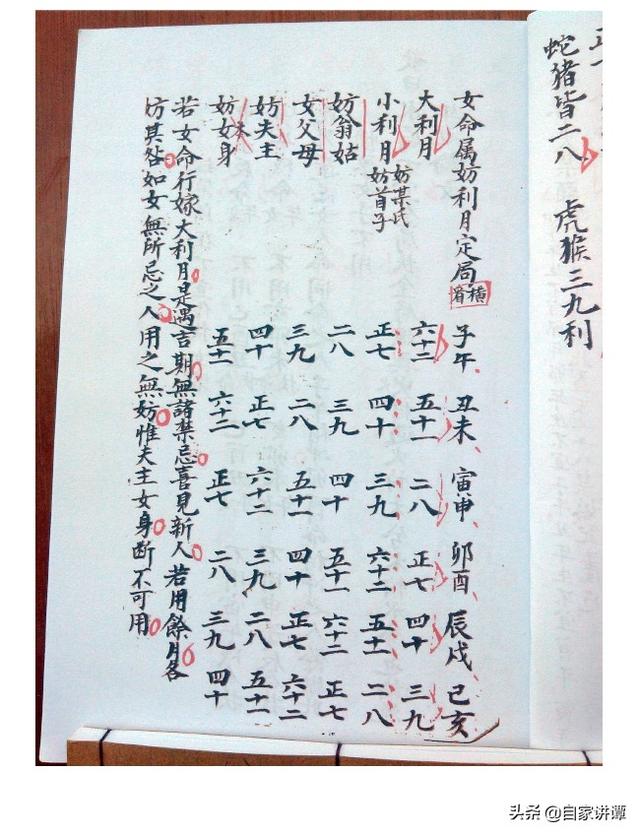 蛇猪皆二八 虎猴三九利
女命属妨利月定局 橫看 子午 丑未 寅申 卯酉 辰戌 巳亥
大利月 六十二 五十一 二八 正七 四十 三九
小利月 妨某氏 妨首子 正七 四十 三九 六十二 五十一 二八
妨翁姑 二八 三九 四十 五十一 六十二 正七
女父母 三九 二八 五十一 四十 正七 六十二
妨夫主 四十 正七 六十二 三九 二八 五十一
妨女身 五十一 六十二 正七 二八 三九 四十
若女命行嫁大利月是遇吉期無諸禁忌喜見新人若用餘月各
妨其咎如女無所忌之人用之無妨惟夫主女身断不可用
头条 @自家讲谭